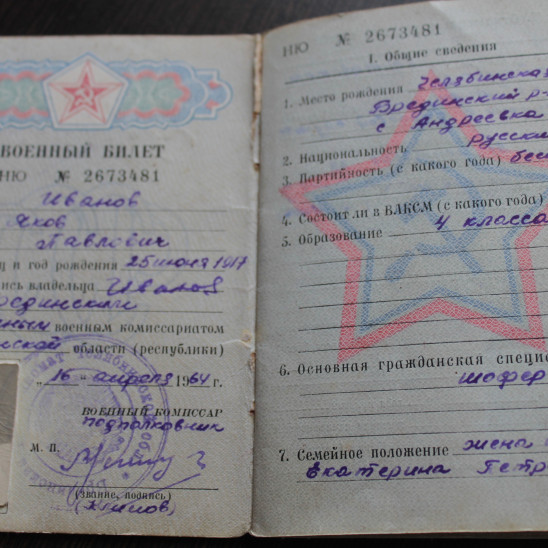 ВОЕННЫЙ БИЛЕТ
НЮ № 2673481
Иванов
Яков
Павлович
ц и год рождения 25 июня 1917
пись владельца Иванов
Брединским
военным комиссариатом
нской области (республики)
„16" апреля 1964 г.
ВОЕННЫЙ КОМИССАР
подполковник
М. П.
(звание, подпись)
НЮ № 2673481
I. Общие сведения
1. Место рождения Челябинская
Брединский р-
с Андреевка
2. Национальность русский
3. Партийность (с какого года) бесп
4. Состоит ли в ВЛКСМ (с какого года)
5. Образование 4 класса
6. Основная гражданская специ
шофер
7. Семейное положение жена
Екатерина Петр